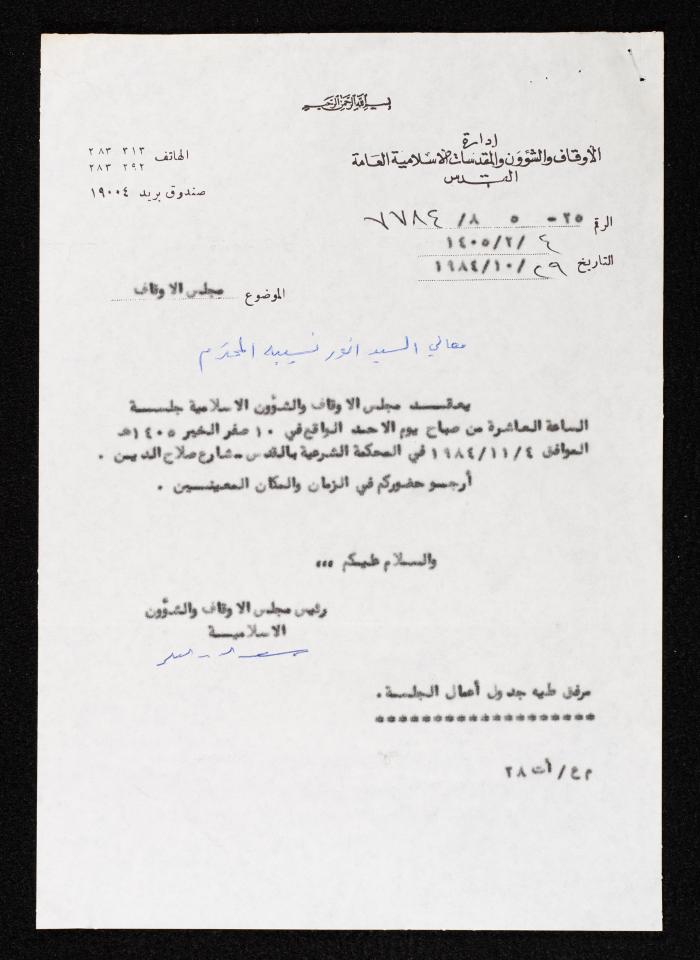 بسم الله الرحمن الرحيم
إدارة
الأوقاف والشؤون والمقدسات الاسلامية العامة
القدس
الهاتف ٢٨٣ ٣١٣
٢٨٣ ٢٩٢
صندوق بريد ١٩٠٠٤
الرقم ٢٥ - ٥ ٨/ ٧٧٨٤
١٤٠٥/٢/٤
التاريخ ١٩٨٤/١٠/٢٩
الموضوع مجلس الاوقاف
معالي السيد انور نسيبه المحترم
يعقـــد مجلس الاوقاف والشؤون الاسلامية جلســـة
الساعة العاشرة من صباح يوم الاحد الواقع في ١٠ صفر الخير ١٤٠٥هـ
الموافق ١٩٨٤/١١/٤ في المحكمة الشرعية بالقدس - شارع صلاح الديــن .
أرجـــو حضوركم في الزمان والمكان المعينـــين .
والســـلام عليـكم ...
رئيس مجلس الاوقاف والشؤون
الاسلاميـــة
مرفق طيه جدول أعمال الجلســـة .
*******************
م ع / أت ٢٨